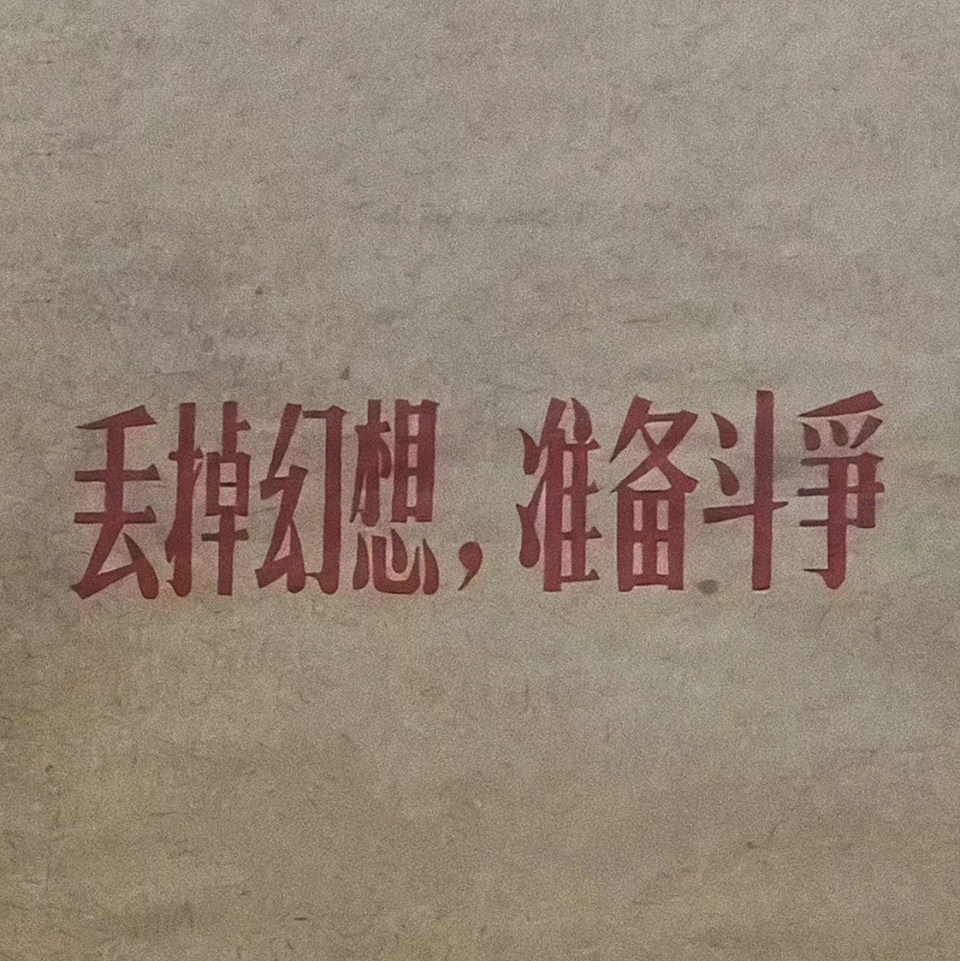 丢掉幻想，准备斗爭